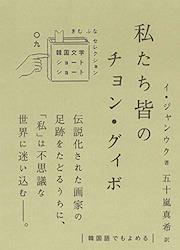 私たち皆の
チョン・グイボ
イ・ジャンウク 著
五十嵐真希 訳
きむ ふな セレクション
韓国文学
ショート
ショート
〇九
伝説化された画家の
足跡をたどるうちに、
「私」は不思議な
世界に迷い込む――。
韓国語でもよめる